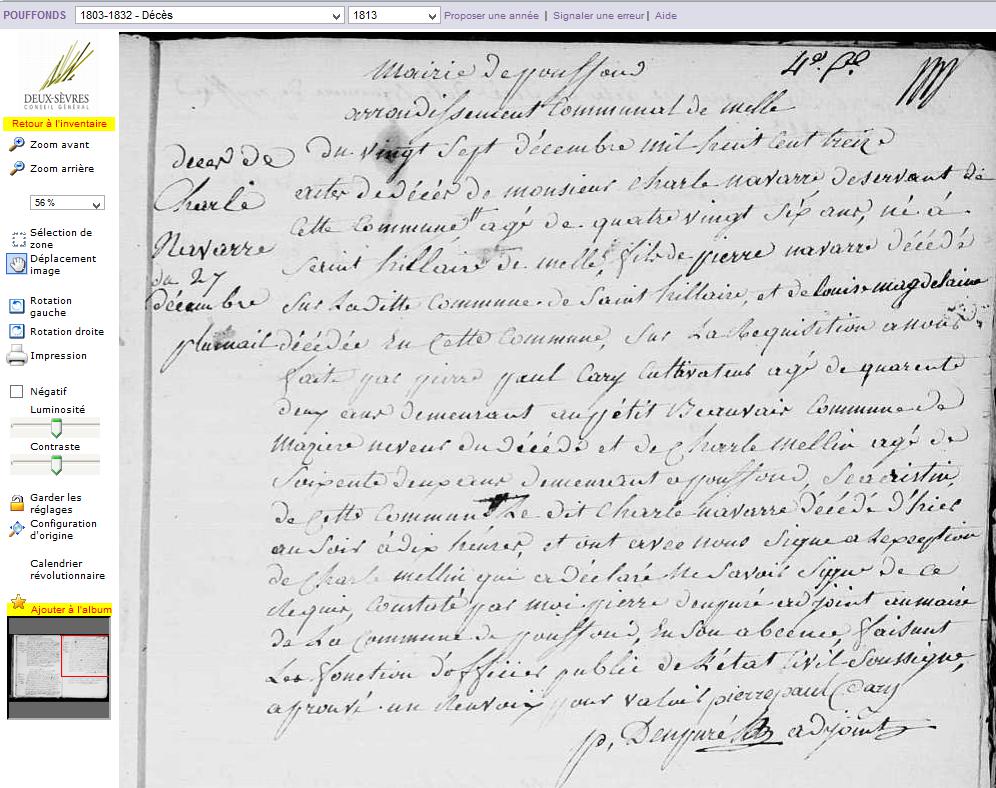 POUFFONDS
1803-1832 - Décès
1813
Proposer une année | Signaler une erreur | Aide
DEUX-SÈVRES
CONSEIL GÉNÉRAL
Retour à l'inventaire
Zoom avant
Zoom arrière
56 %
Sélection de
zone
Déplacement
image
Rotation
gauche
Rotation droite
Impression
Négatif
Luminosité
Contraste
Garder les
réglages
Configuration
d'origine
Calendrier
révolutionnaire
Ajouter à l'album
Mairie de pouffond
arrondissement Communal de melle
deces de
Charle
Navarre
du 27
décembre
du vingt Sept décembre mil huit Cent treize
actes de décés de monsieur Charle navarre deservant de
Cette Commune agé de quatre vingt Six ans, né à
Seint hillaire de melle, fils de pierre navarre décédé
Sur Laditte Commune de Saint hillaire, et de louise magdelaine
plumail décédée En Cette Commune, Sur La Requisition a nous
faite par pierre paul Cary Cultivateur agé de quarente
deux ans demeurant au pétit Beauvais Commune de
maziere neveu du décédé et de Charle mellin agé de
Soixente deux ans demeurant a pouffond, Sacristin
de Cette Commune Le dit Charle navarre décédé d'hier
au Soir à dix heures, et ont avec nous Signe a lexception
de Charle mellin qui a déclaré ne Savoir Signe de ce
Requis, Constaté par moi pierre denguré adjoint au maire
de La Commune de pouffond, En Son absence, faisant
Les fonction d'officier public de L'état Civil Soussigne,
aprouvé un Renvoix pour valoir pierre paul Cary
p. Denguré adjoint